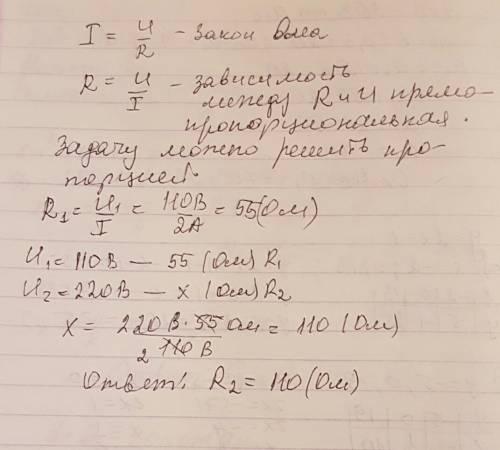 I = U/R - Закон Ома
R = U/I - зависимость
между R и U прямо-
пропорциональная.
Задачу можно решить про-
порцией
R₁ = U₁/I = 110В/2А = 55(Ом)
U₁ = 110В — 55 (Ом) R₁
U₂ = 220В — x (Ом) R₂
x = 220В · 55 Ом / 110В = 110 (Ом)
2
Ответ: R₂ = 110 (Ом)